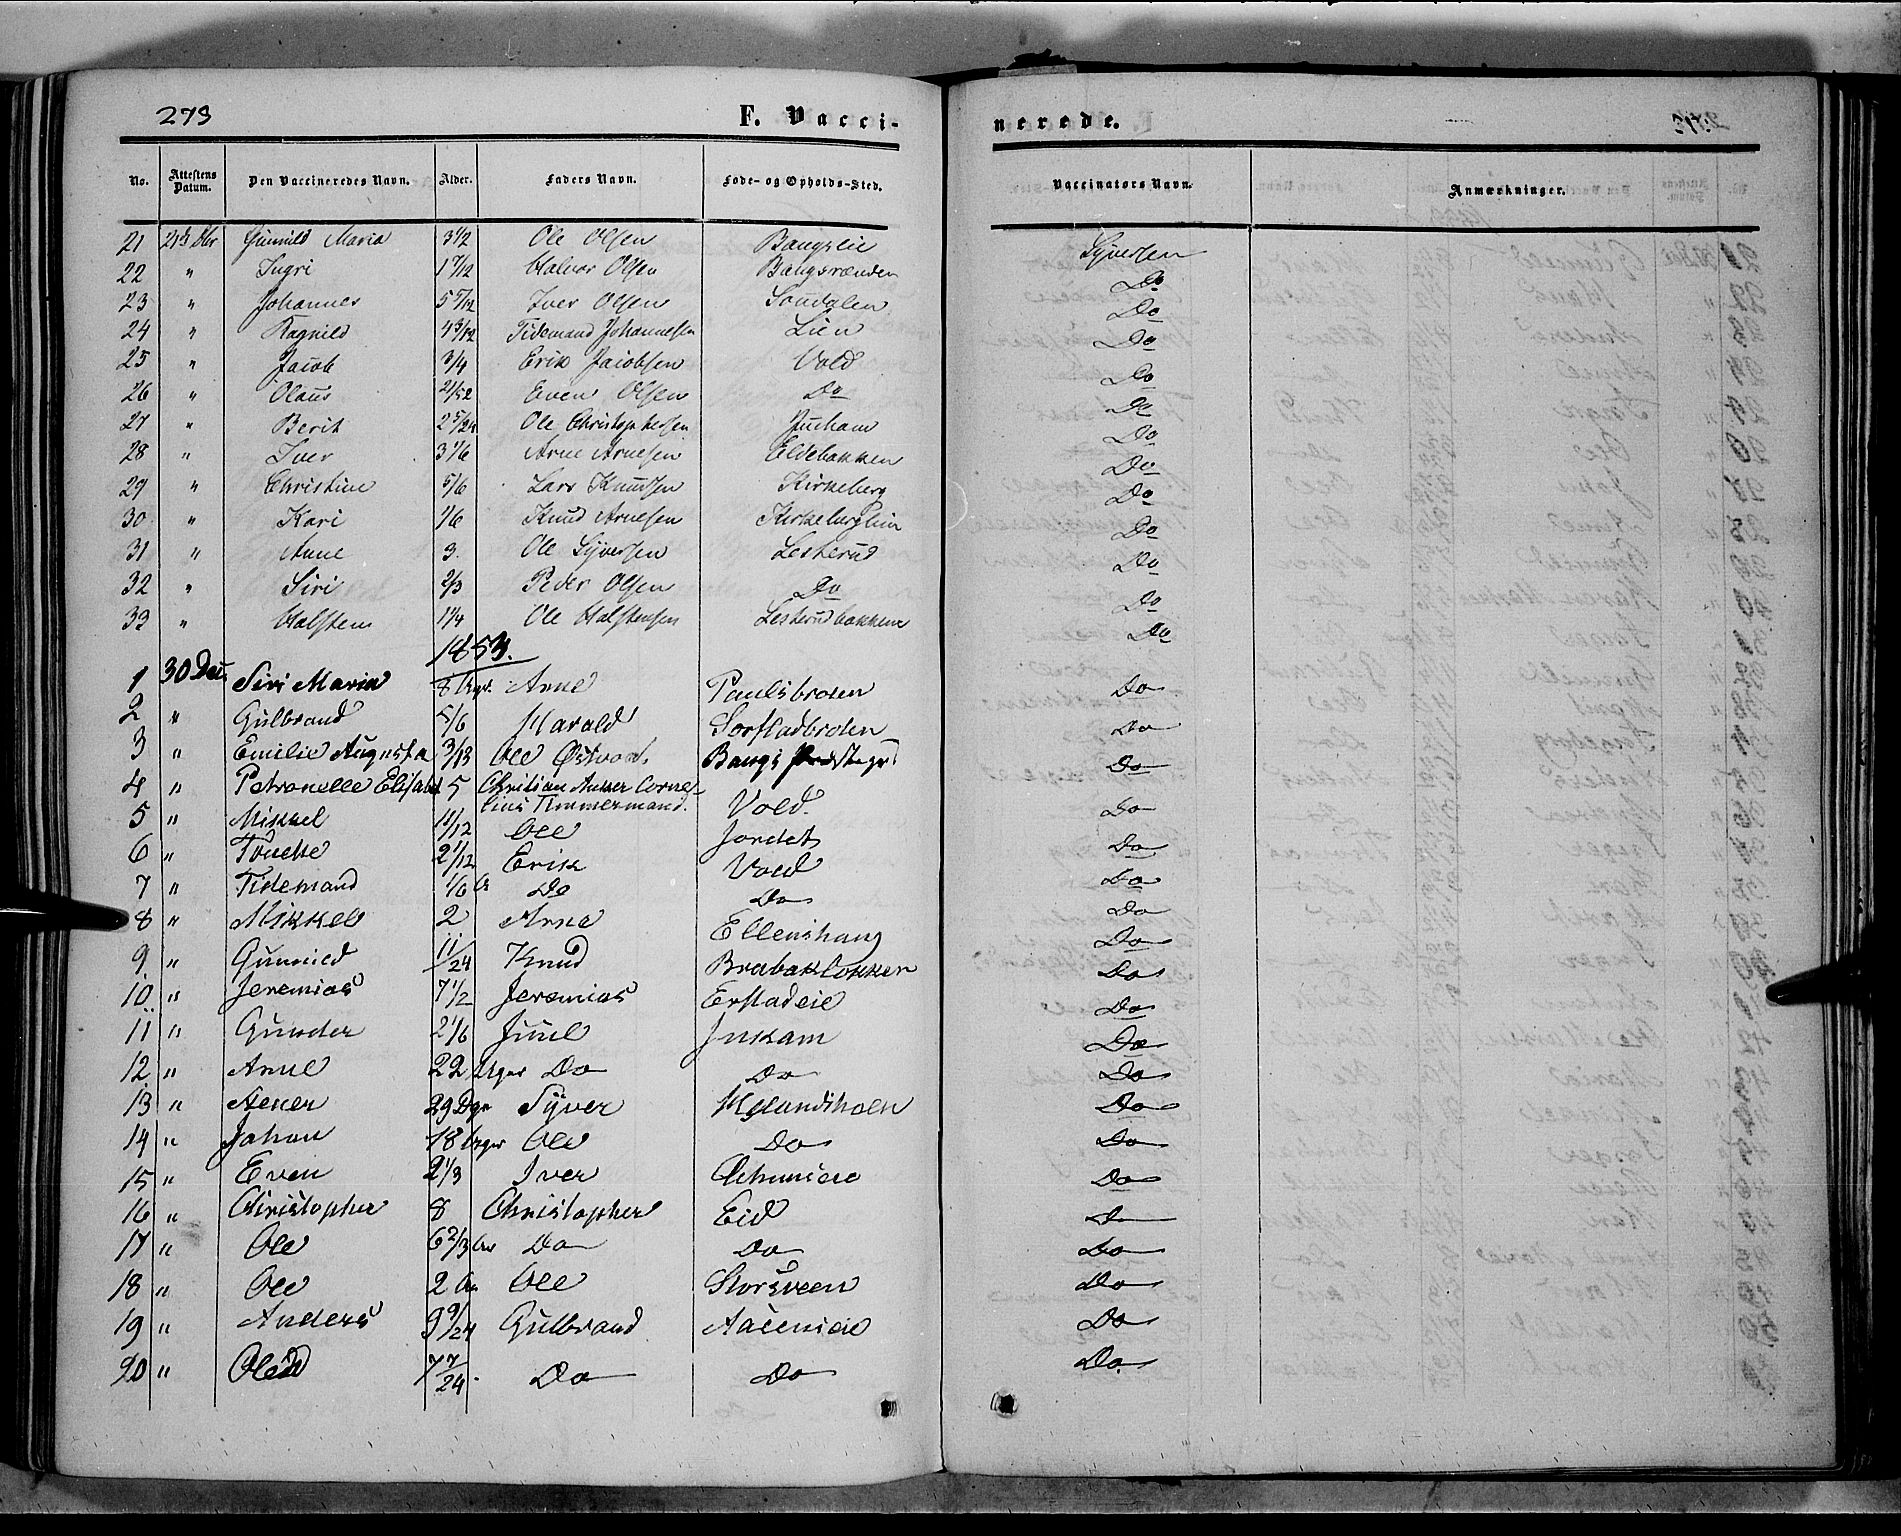 273 F. Vacci- nerede.
No. Attestens Datum. Den Vaccineredes Navn. Alder. Faders Navn. Føde- og Opholds-Sted. Vaccinators Navn. Anmærkninger.
21 Gunnild Maria 3 1/2 Ole Olsen Bangslie Syversen
22 " Ingri 1 7/12 Halvor Olsen Bangsrænden Do
23 " Johannes 5 5/12 Iver Olsen Do
24 " Ragnild Tidemand Johannesen Lien Do
25 " Jacob 3/4 Erik Jacobsen Vold Do
26 " Olaus Even Olsen Do Do
27 " Berit 2 5/24 Ole Christophersen Do
28 " Iver 3 1/6 Arne Arnesen Eldebakken Do
29 " Christine 5/6 Lars Knudsen Kirkeberg Do
30 " Kari 1/6 Knud Arnesen Do
31 " Anne 3. Ole Syversen Lesterud Do
32 " Siri 2/3 Peder Olsen Do Do
33 " Halsten 1 1/4 Ole Halstensen Lesterudbakken Do
1853.
1 30 Dec Siri Maria 8 Arne Paulsbroten Do
2 " Gulbrand 5/6 Harald Sorstadbroten Do
3 " Emilie Augusta Ole Bangs Do
4 " Petronelle Elisabet 5 Christian Anker Corne-
lius Timmermand. Vold. Do
5 " Mikkel 11/12 Ole Jordet Do
6 " 2 1/12 Erik Vold Do
7 " Tidemand 1/6 Do Do Do
8 " Mikkel 2 Arne Ellenshaug Do
9 " Gunnild 11/24 Knud Do
10 " Jeremias 7 1/2 Jeremias Erstadeie Do
11 " Gunder 2 1/6 Juul Jukam Do
12 " Arne 22 Uger Do Do Do
13 " 29 Dge Syver Do
14 " Johan 18 Uger Ole Do Do
15 " Even 2 1/3 Iver Do
16 " Christopher 8 Christopher Eid Do
17 " Ole 6 2/3 Do Do Do
18 " Ole 2 Ole Storsveen Do
19 " Anders 9 9/24 Gulbrand Do
20 " 7 7/24 Do Do Do